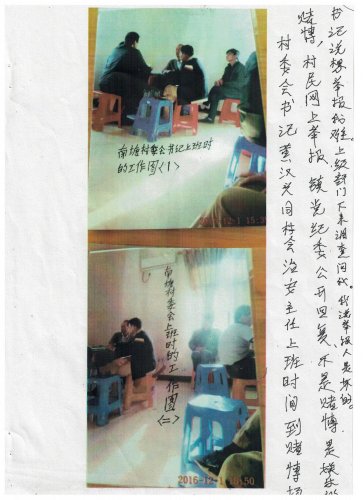 南塘村委会书记上班时
的工作图<1>
南塘村委会上班时的工作图<二>
2016-12-1 15:50
村委会书记董汉 同村会治安主任上班时间到赌博场
赌博,村民网上举报,镇党纪委公开回复,不是赌博是娱
书记说想举报我难。上级部门下来调查问我。我说举报人是